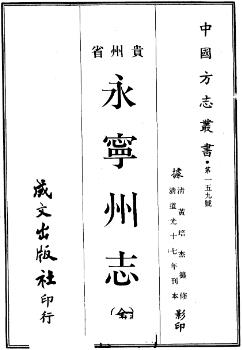 中國方志叢書·第一五九號
據清黃培杰纂修
清道光十七年刊本
影印
貴州省
永寧州志
(全)
成文出版社印行